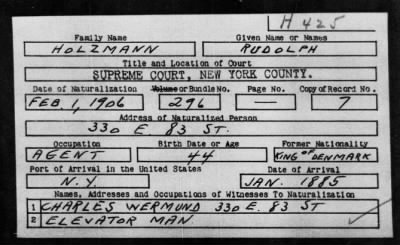 H 425
Family Name Given Name or Names
HOLZMANN RUDOLPH
Title and Location of Court
SUPREME COURT, NEW YORK COUNTY.
Date of Naturalization Volume or Bundle No. Page No. Copy of Record No.
FEB. 1, 1906 296 — 7
Address of Naturalized Person
330 E. 83 ST.
Occupation Birth Date or Age Former Nationality
AGENT 44 KING OF DENMARK
Port of Arrival in the United States Date of Arrival
N.Y. JAN. 1885
Names, Addresses and Occupations of Witnesses To Naturalization
1 CHARLES WERMUND 330 E. 83 ST
2 ELEVATOR MAN